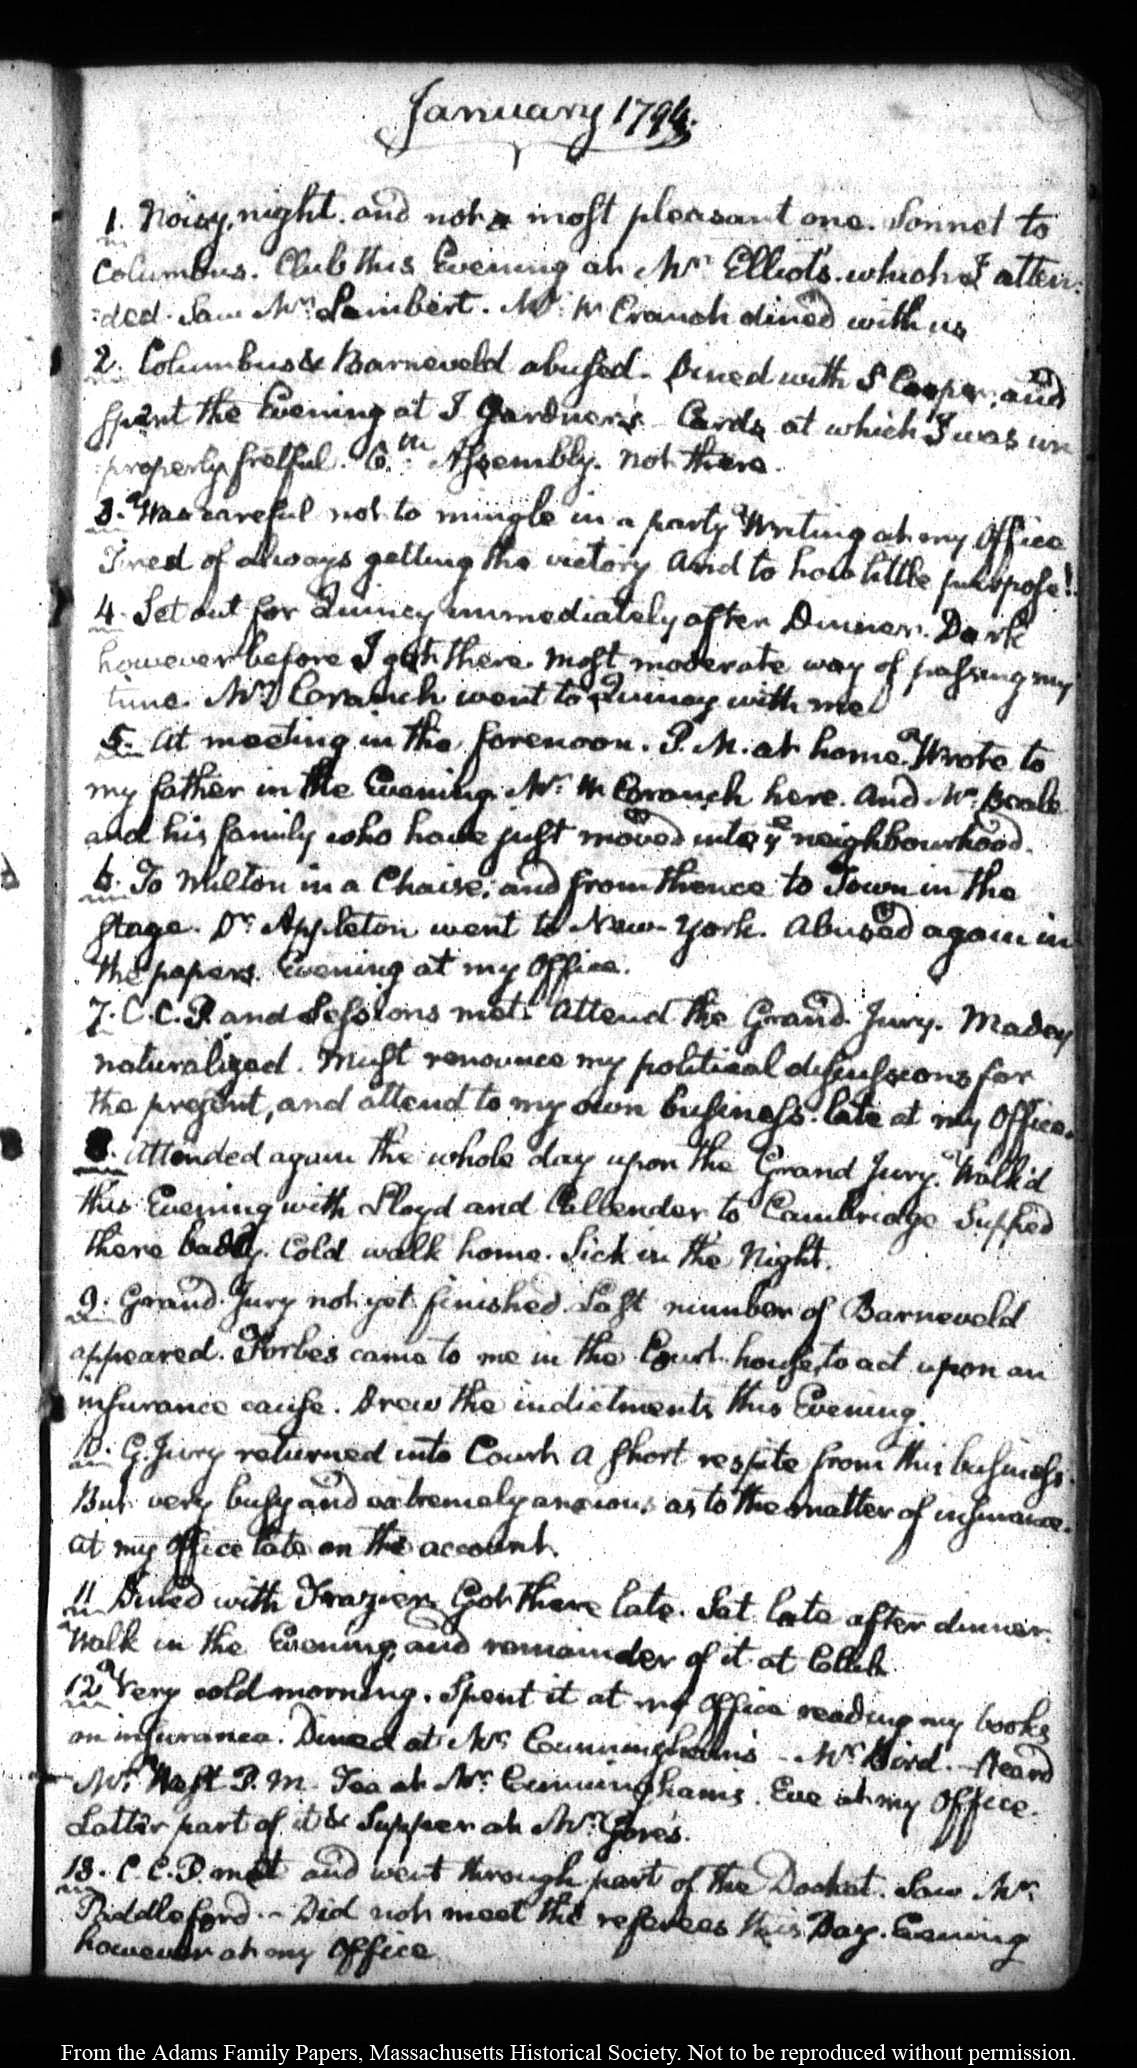 January 1794.
1. Noisy, night. and not a most pleasant one. Sonnet to
Columbus. Club this Evening at Mr. Elliot's. which I atten:
:ded. Saw Mr. Lambert. Mr. W Cranch dined with us
2. Columbus & Barneveld abused. Dined with S Cooper, and
Spent the Evening at J. Gardner's. Cards at which I was im
:properly fretful. 6.th Assembly. not there.
3. Was careful not to mingle in a party Writing at my Office
Tired of always getting the victory and to how little purpose!
4. Set out for Quincy immediately after Dinner. Dark
however before I got there. Most moderate way of passing my
time. Mr. Cranch went to Quincy with me.
5. At meeting in the forenoon. P.M. at home. Wrote to
my father in the Evening. Mr. W Cranch here. And Mr. Beale
and his family who have just moved into ye neighbourhood.
6. To Milton in a Chaise; and from thence to Town in the
Stage. Dr. Appleton went to New-York. Abused again in
the papers. Evening at my Office.
7. C.C.P. and Sessions met. Attend the Grand Jury.
naturalized. Must renounce my political discussions for
the present, and attend to my own business. late at my Office.
8. Attended again the whole day upon the Grand Jury. Walk'd
this Evening with Lloyd and Callender to Cambridge Supped
there badly. Cold walk home. Sick in the Night.
9. Grand Jury not yet finished Last number of Barneveld
appeared. Forbes came to me in the Court house, to act upon an
insurance cause. Drew the indictments this Evening.
10. G. Jury returned into Court a short respite from this business.
But very busy and extremely anxious as to the matter of insurance.
at my Office late on the account.
11 Dined with Frazier. Got there late. Sat late after dinner.
Walk in the Evening, and remainder of it at Club
12 Very cold morning. Spent it at my Office reading my books
on insurance. Dined at Mr. Cunningham's - Mr. Bird. - Heard
Mr. West P.M. Tea at Mr. Cunningham's. Eve at my Office.
Latter part of it & Supper at Mr. Gore's.
13. C.C.P. met and went through part of the Docket. Saw Mr.
Paddleford. - Did not meet the referees this Day. Evening
however at my Office
From the Adams Family Papers, Massachusetts Historical Society. Not to be reproduced without permission.